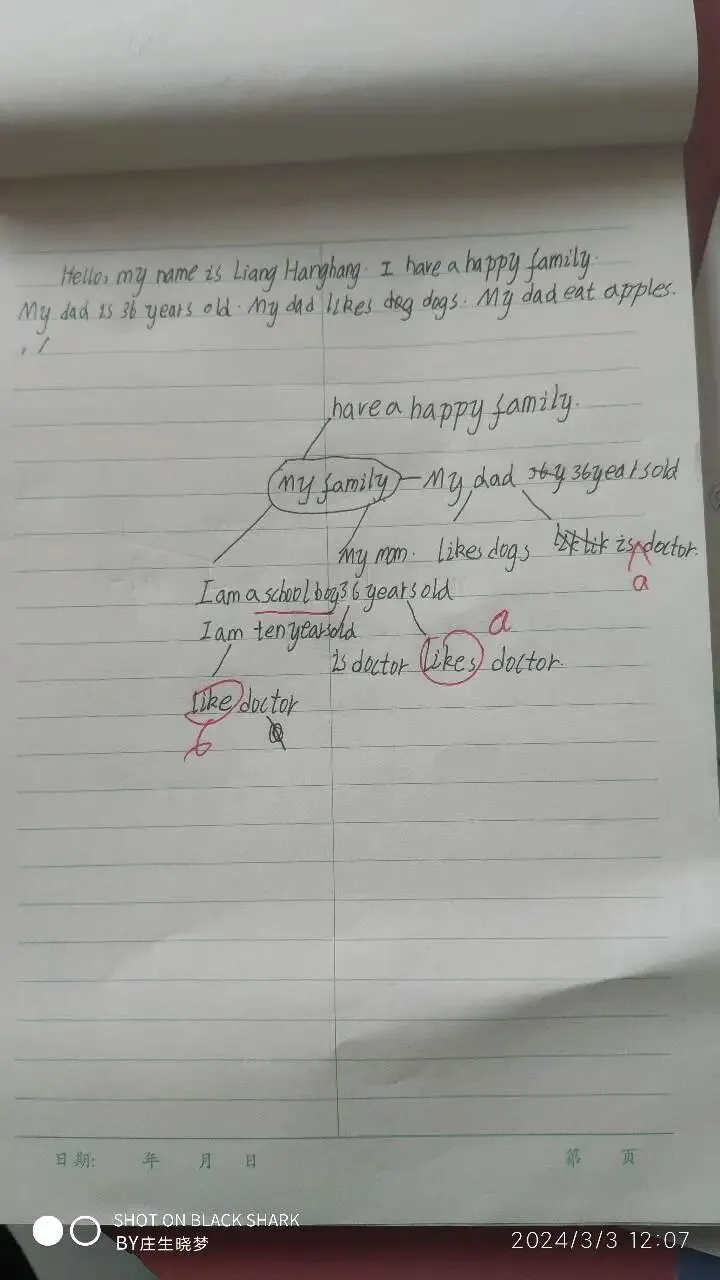 Hello, my name is Liang Hanghang. I have a happy family.
My dad is 36 years old. My dad likes dog dogs. My dad eat apples.
have a happy family.
My family My dad 36 y 36 years old
My mom. likes dogs is doctor.
a
I am a school boy 36 years old
I am ten years old
a
is doctor likes doctor.
like doctor
日期: 年 月 日 第 页
SHOT ON BLACK SHARK
BY庄生晓梦 2024/3/3 12:07